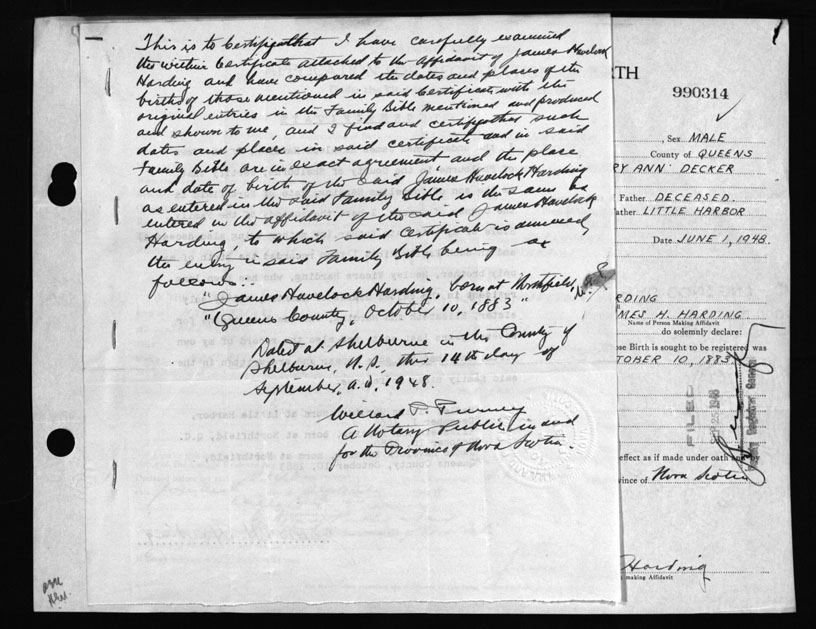 This is to Certify that I have carefully examined
the within Certificate attached to the affidavit of James Havelock
Harding and have compared the dates and places of the
births of those mentioned in said Certificate with the
original entries in the Family Bible mentioned and produced
and shown to me, and I find and certify that such
dates and places in said certificate and in said
Family Bible are in exact agreement and the place
and date of birth of the said James Havelock Harding
as entered in the said Family Bible is the same as
entered in the affidavit of the said James Havelock
Harding, to which said Certificate is annexed,
the entry in said Family Bible being as
follows:-
"James Havelock Harding, born at Northfield, N.S.
"Queens County, October 10, 1883"
Dated at Shelburne in the County of
Shelburne, N.S., this 14th day of
September, A.D. 1948.
Willard
A Notary Public in and
for the Province of Nova Scotia
RTH
990314
Sex MALE
County of QUEENS
RY ANN DECKER
Father DECEASED.
ather LITTLE HARBOR
Date JUNE 1, 1948.
RDING
MES H. HARDING
Name of Person Making Affidavit
do solemnly declare:
ose Birth is sought to be registered was
TOBER 10, 1883
FILED
effect as if made under oath and by
vince of Nova Scotia
Harding
making Affidavit